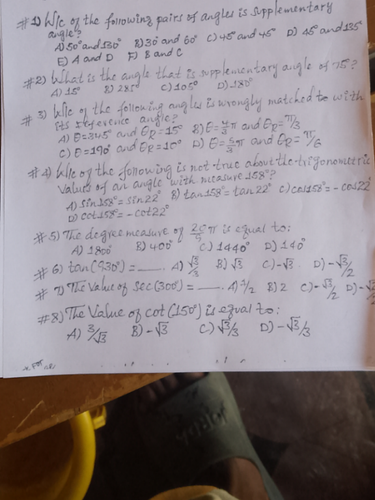 #1) W/c of the following pairs of angles is supplementary
angle?
A) 50° and 130° B) 30° and 60° C) 45° and 45° D) 45° and 135°
E) A and D F) B and C
#2) What is the angle that is supplementary angle of 75°?
A) 15° B) 285° C) 105° D) 180°
#3) W/c of the following angles is wrongly matched to with
its reference angle?
A) θ=345° and θR=15° B) θ= π and θR=π/3
C) θ=190° and θR=10° D) θ= π and θR=π/6
#4) W/c of the following is not true about the trigonometric
Values of an angle with measure 158°?
A) sin158°=sin22° B) tan158°=tan22° C) cos158°=-cos22°
D) cot158°=-cot22°
#5) The degree measure of π is equal to:
A) 1800° B) 400° C) 1440° D) 140°
#6) tan( 30°)=____. A) √3/3 B) √3 C) -√3 D) -√3/2
#7) The value of sec(300°)= ____. A) 1/2 B) 2 C) -√3/2 D) -√3
#8) The Value of cot(150°) is equal to:
A) 3/√3 B) -√3 C) √3/3 D) -√3/3